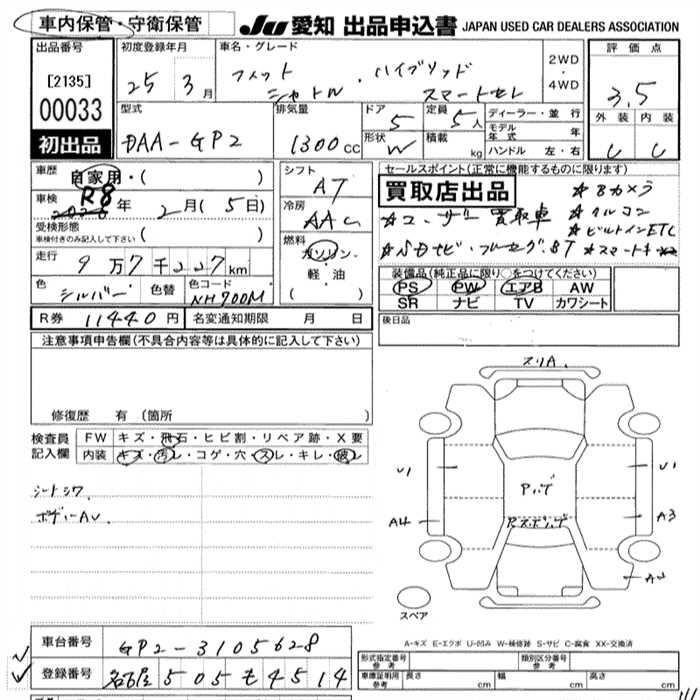 車内保管・守衛保管 JU 愛知 出品申込書 JAPAN USED CAR DEALERS ASSOCIATION
出品番号 初度登録年月 車名・グレード 2WD・4WD 評価点
[2135] 25年 3月 フィット シャトル・ハイブリッド スマートセレ 3.5
00033 型式 排気量 ドア 定員 ディーラー・並行 外装 内装
初出品 DAA-GP2 1300cc 5 5人 モデル年式 年
形状 W 積載 kg ハンドル 左・右 C C
車歴 自家用・( ) シフト AT セールスポイント(正常に機能するものに限ります)
車検 R8年 2月(5日) 冷房 AAC 買取店出品 ☆Bカメラ
受検形態 車検付きのみ記入して下さい ( ) ☆ユーザー買取車 ☆クルコン
燃料 ガソリン・軽油 ( ) ☆ビルトインETC
走行 9万7千227km ☆SDナビ・フルセグ・BT ☆スマートキー
色 シルバー 色替 色コード NH700M 装備品(純正品に限り○をつけてください)
PS PW エアB AW
SR ナビ TV カワシート
R券 11440円 名変通知期限 月 日 後日品
注意事項申告欄(不具合内容等は具体的に記入して下さい)
修復歴 有 (箇所 )
検査員記入欄 FW キズ・飛石・ヒビ割・リペア跡・X要
内装 キズ・汚レ・コゲ・穴・スレ・キレ・破レ
シートシワ.
ボディーAU.
スリA.
U1 U1
Pハゲ
A4 A3
スペア
A-キズ E-エクボ U-凹み W-補修跡 S-サビ C-腐食 XX-交換済
車台番号 GP2-3105628
登録番号 名古屋 505 も 4514
形式指定番号 参考 類別区分番号 参考
車庫証明用 参考 長さ cm 幅 cm 高さ cm